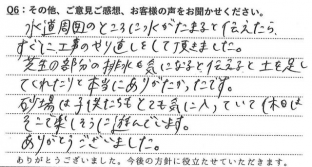 Q6：その他、ご意見ご感想、お客様の声をお聞かせください。
水道周囲のところに水がたまると伝えたら、
すぐに工事のやり直しをして頂きました。
芝生の部分の排水も気になると伝えると土を足し
てくれたりと本当にありがたかったです。
砂場は子供たちもとても気に入っていて休日は
そこで楽しそうに遊んでいます。
ありがとうございました。
ありがとうございました。今後の方針に役立たせていただきます。